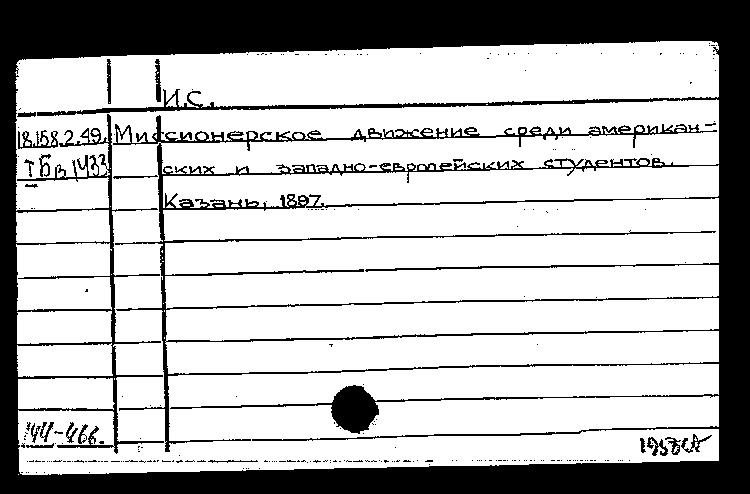 И.С.
18.158.2.49. Миссионерское движение среди американ-
ТБв 1433 ских и западно-европейских студентов.
Казань, 1897.
144-466.